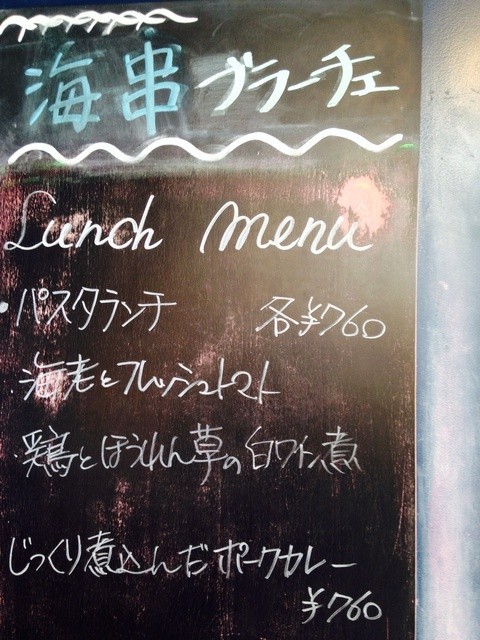 海串 ブラーチェ
Lunch menu
・パスタランチ 各¥760
海老とフレッシュトマト
鶏とほうれん草の白ワイン煮
じっくり煮込んだポークカレー
¥760